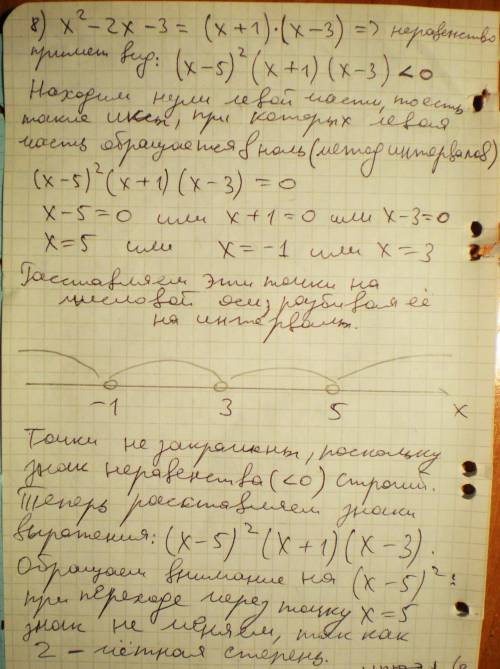 8) x² - 2x - 3 = (x+1)·(x-3) => неравенство
примет вид: (x-5)² (x+1) (x-3) < 0
Находим нули левой части, то есть
такие иксы, при которых левая
часть обращается в ноль (метод интервалов)
(x-5)² (x+1) (x-3) = 0
x-5=0 или x+1=0 или x-3=0
x=5 или x=-1 или x=3
Расставляем эти точки на
числовой оси, разбивая её
на интервалы.
-1 3 5 x
Точки не закрашены, поскольку
знак неравенства (<0) строгий.
Теперь расставляем знаки
выражения: (x-5)² (x+1) (x-3).
Обращаем внимание на (x-5)²:
при переходе через точку x=5
знак не меняем, так как
2 - чётная степень.